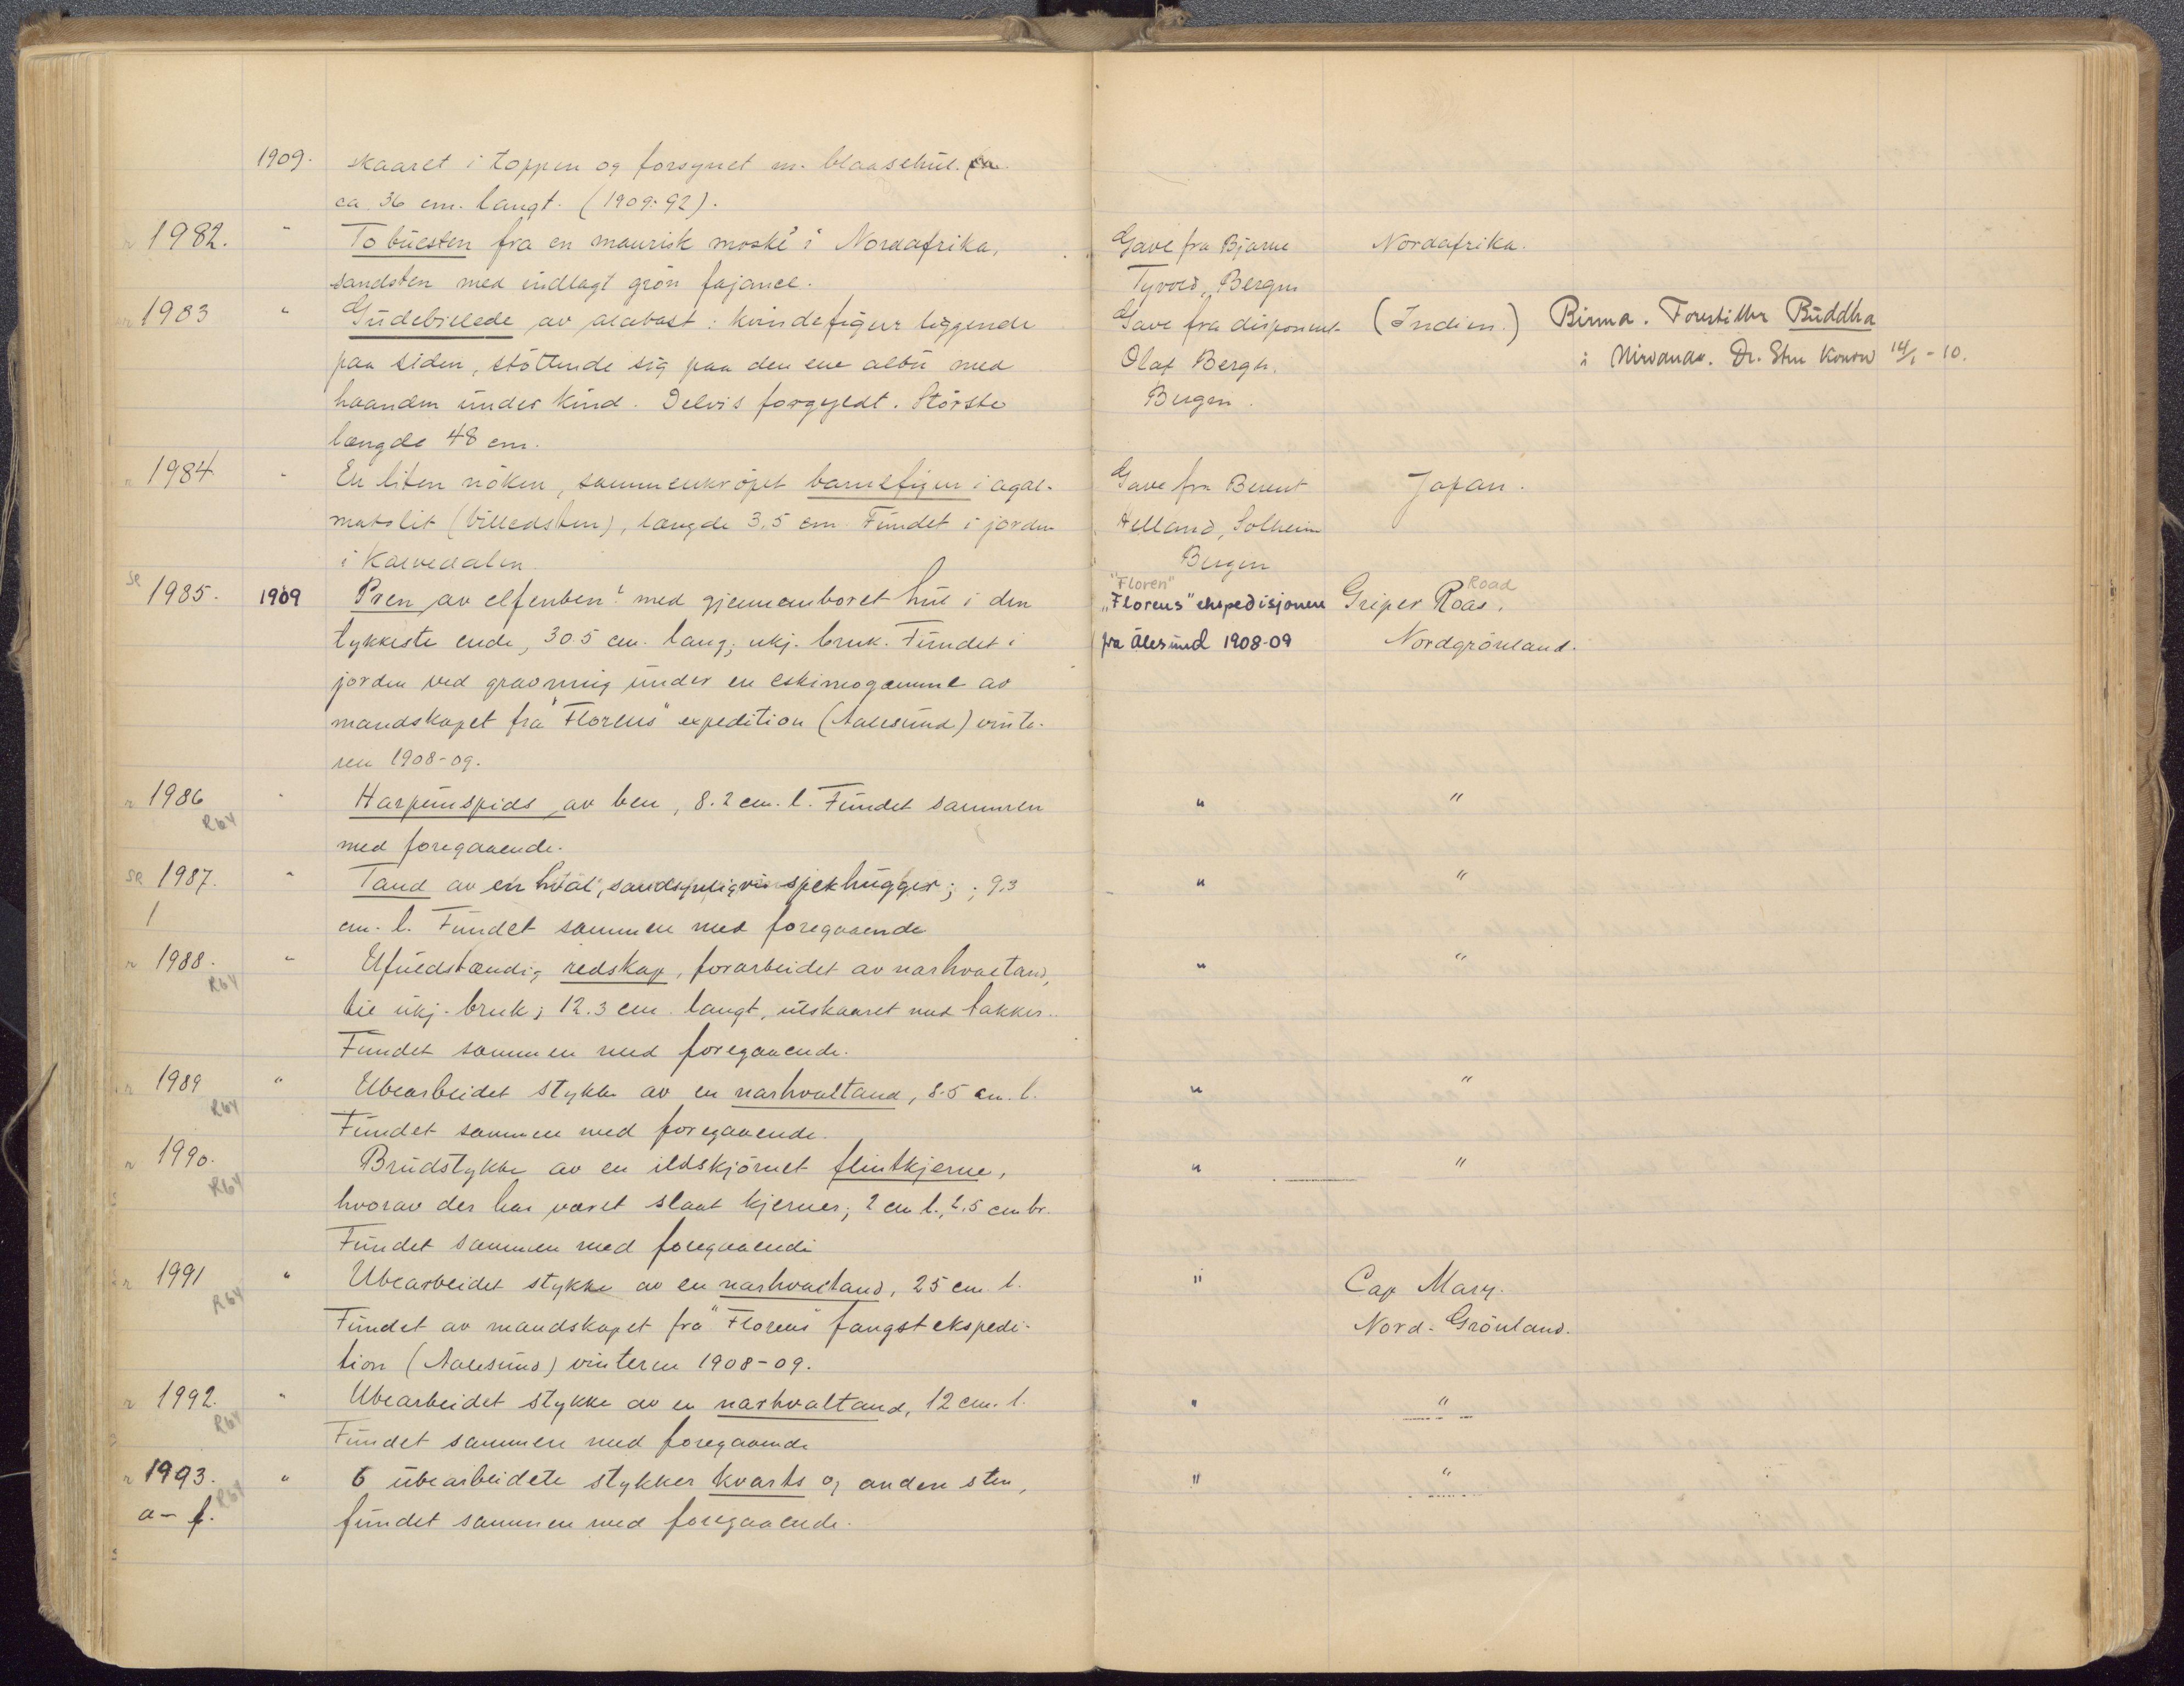 1909. skaaret i toppen og forsynet m. blaasehul.
ca 36 cm. langt. (1909:92).
1982. " To buesten fra en maurisk moské i Nordafrika, Gave fra Bjarne Nordafrika.
sandsten med indlagt grön fajance. Tyvold, Bergen
1983 " Gudebillede av alabast: kvindefigur liggende Gave fra disponent (Indien.) Birma. Forestiller Buddha
paa siden, stöttende sig paa den ene albu med Olaf Bergh. i Nirvana. Dr. Sten Konow 14/1 - 10.
haanden under kind. Delvis forgyldt. Störste Bergen.
længde 48 cm.
1984 " En liten nöken, sammenkröpet barnefigur i agal- Gave fra Berent Japan.
matolit (billedsten), længde 3,5 cm. Fundet i jorden Helland, Solheim
i Kalvedalen. Bergen
se "Floren" Road
1985. 1909 Pren av elfenben? med gjennemboret hul i den „Florens" ekspedisjonen Griper Roas.
tykkeste ende, 30.5 cm. lang; ukj. bruk. Fundet i fra Ålesund 1908-09 Nordgrönland.
jorden ved gravning under en eskimogamme av
mandskapet fra "Florens" expedition (Aalesund) vinte-
ren 1908-09.
1986 " Harpunspids av ben, 8.2 cm. l. Fundet sammen " "
R64
med foregaaende.
se 1987. " Tand av en hval, spækhugger; ; 9.3 " "
1 cm. l. Fundet sammen med foregaaende
1988. " Ufuldstændig redskap, forarbeidet av narhvaltand, " "
R64
til ukj. bruk; 12.3 cm. langt, utskaaret med takker.
Fundet sammen med foregaaende.
1989 " Ubearbeidet stykke av en narhvaltand, 8.5 cm. l. " "
R64
Fundet sammen med foregaaende.
1990. Brudstykke av en ildskjörnet flintkjerne, " "
R64
hvorav der har været slaat kjerner; 2 cm l., 2.5 cm br.
Fundet sammen med foregaaende
1991 " Ubearbeidet stykke av en narhvaltand, 25 cm. l. " Cap Mary.
R64
Fundet av mandskapet fra "Florens" fangstekspedi- Nord-Grönland.
tion (Aalesund) vinteren 1908-09.
1992. " Ubearbeidet stykke av en narhvaltand, 12 cm. l. " "
R64
Fundet sammen med foregaaende
1993. " 6 ubearbeidete stykker kvarts og anden sten, " "
R64
a-f. fundet sammen med foregaaende.